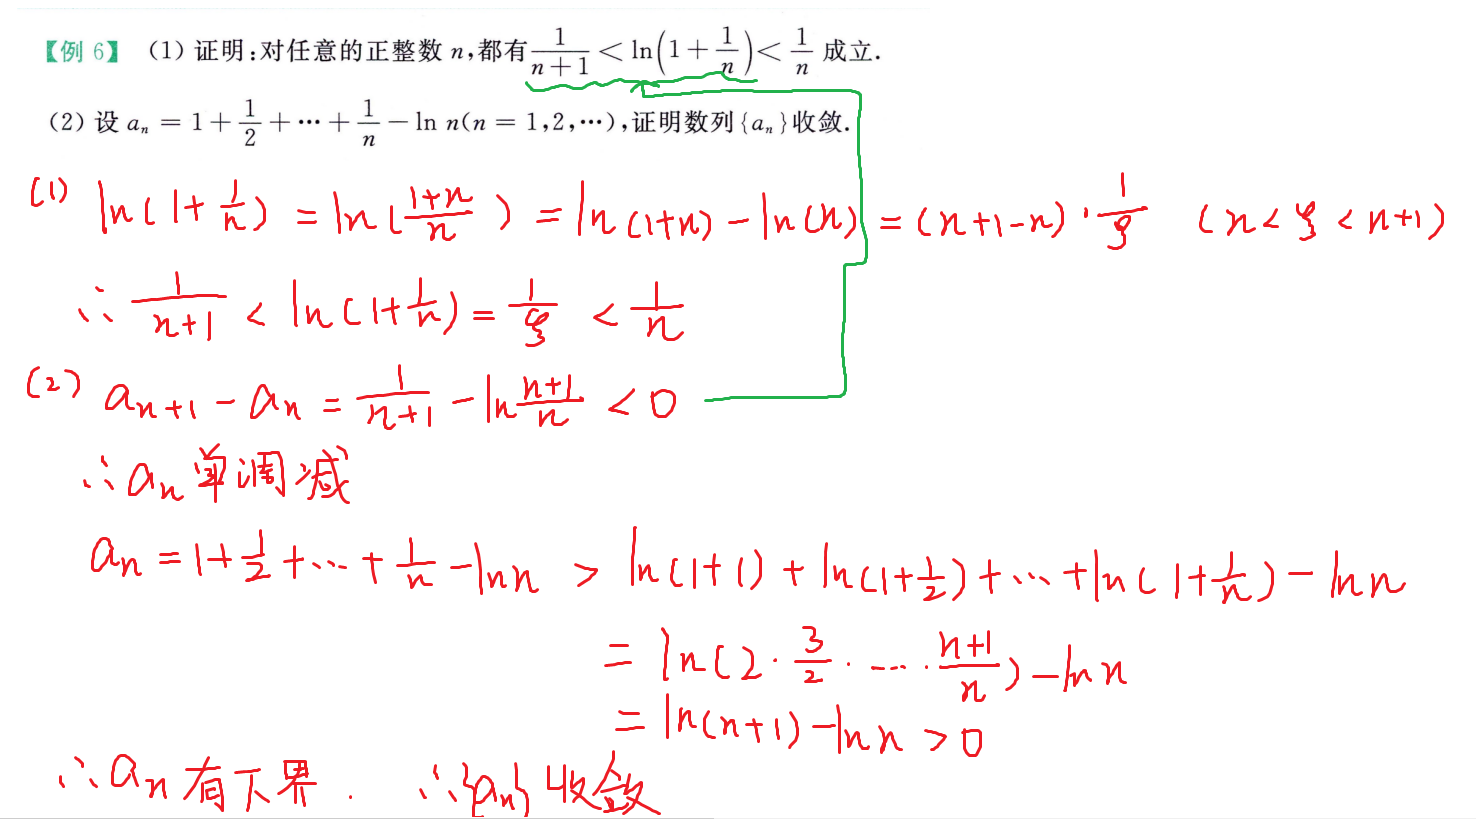 【例 6】 (1) 证明:对任意的正整数 n,都有 1/(n+1) < ln(1+1/n) < 1/n 成立.
(2) 设 aₙ = 1 + 1/2 + ⋯ + 1/n − ln n(n = 1,2,⋯),证明数列{aₙ}收敛.
(1) ln(1+1/n) = ln((1+n)/n) = ln(1+n) − ln(n) = (n+1−n)·1/ξ (n<ξ<n+1)
∴ 1/(n+1) < ln(1+1/n) = 1/ξ < 1/n
(2) aₙ₊₁ − aₙ = 1/(n+1) − ln (n+1)/n < 0
∴ aₙ 单调减
aₙ = 1+1/2+⋯+1/n −ln n > ln(1+1) + ln(1+1/2)+⋯+ln(1+1/n) − ln n
= ln(2·3/2·⋯·(n+1)/n) − ln n
= ln(n+1) − ln n > 0
∴ aₙ 有下界. ∴{aₙ}收敛